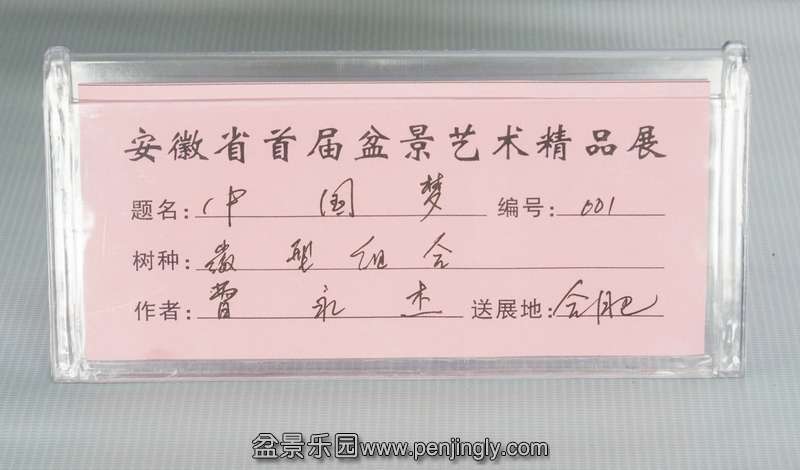 安徽省首届盆景艺术精品展
题名: 中国梦 编号: 001
树种: 微型组合
作者: 曹永杰 送展地: 合肥
盆景乐园www.penjingly.com